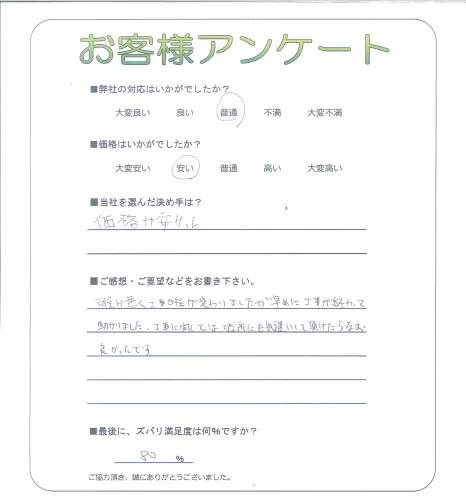 お客様アンケート
■弊社の対応はいかがでしたか?
大変良い 良い 普通 不満 大変不満
■価格はいかがでしたか?
大変安い 安い 普通 高い 大変高い
■当社を選んだ決め手は?
価格が安かった
■ご感想・ご要望などをお書き下さい。
が悪く工事日程が変わりましたが早めに工事が終わって
助かりました。工事に関しては近所にも気遣いして頂けたらなお
良かったです
■最後に、ズバリ満足度は何%ですか?
80 %
ご協力頂き、誠にありがとうございました。